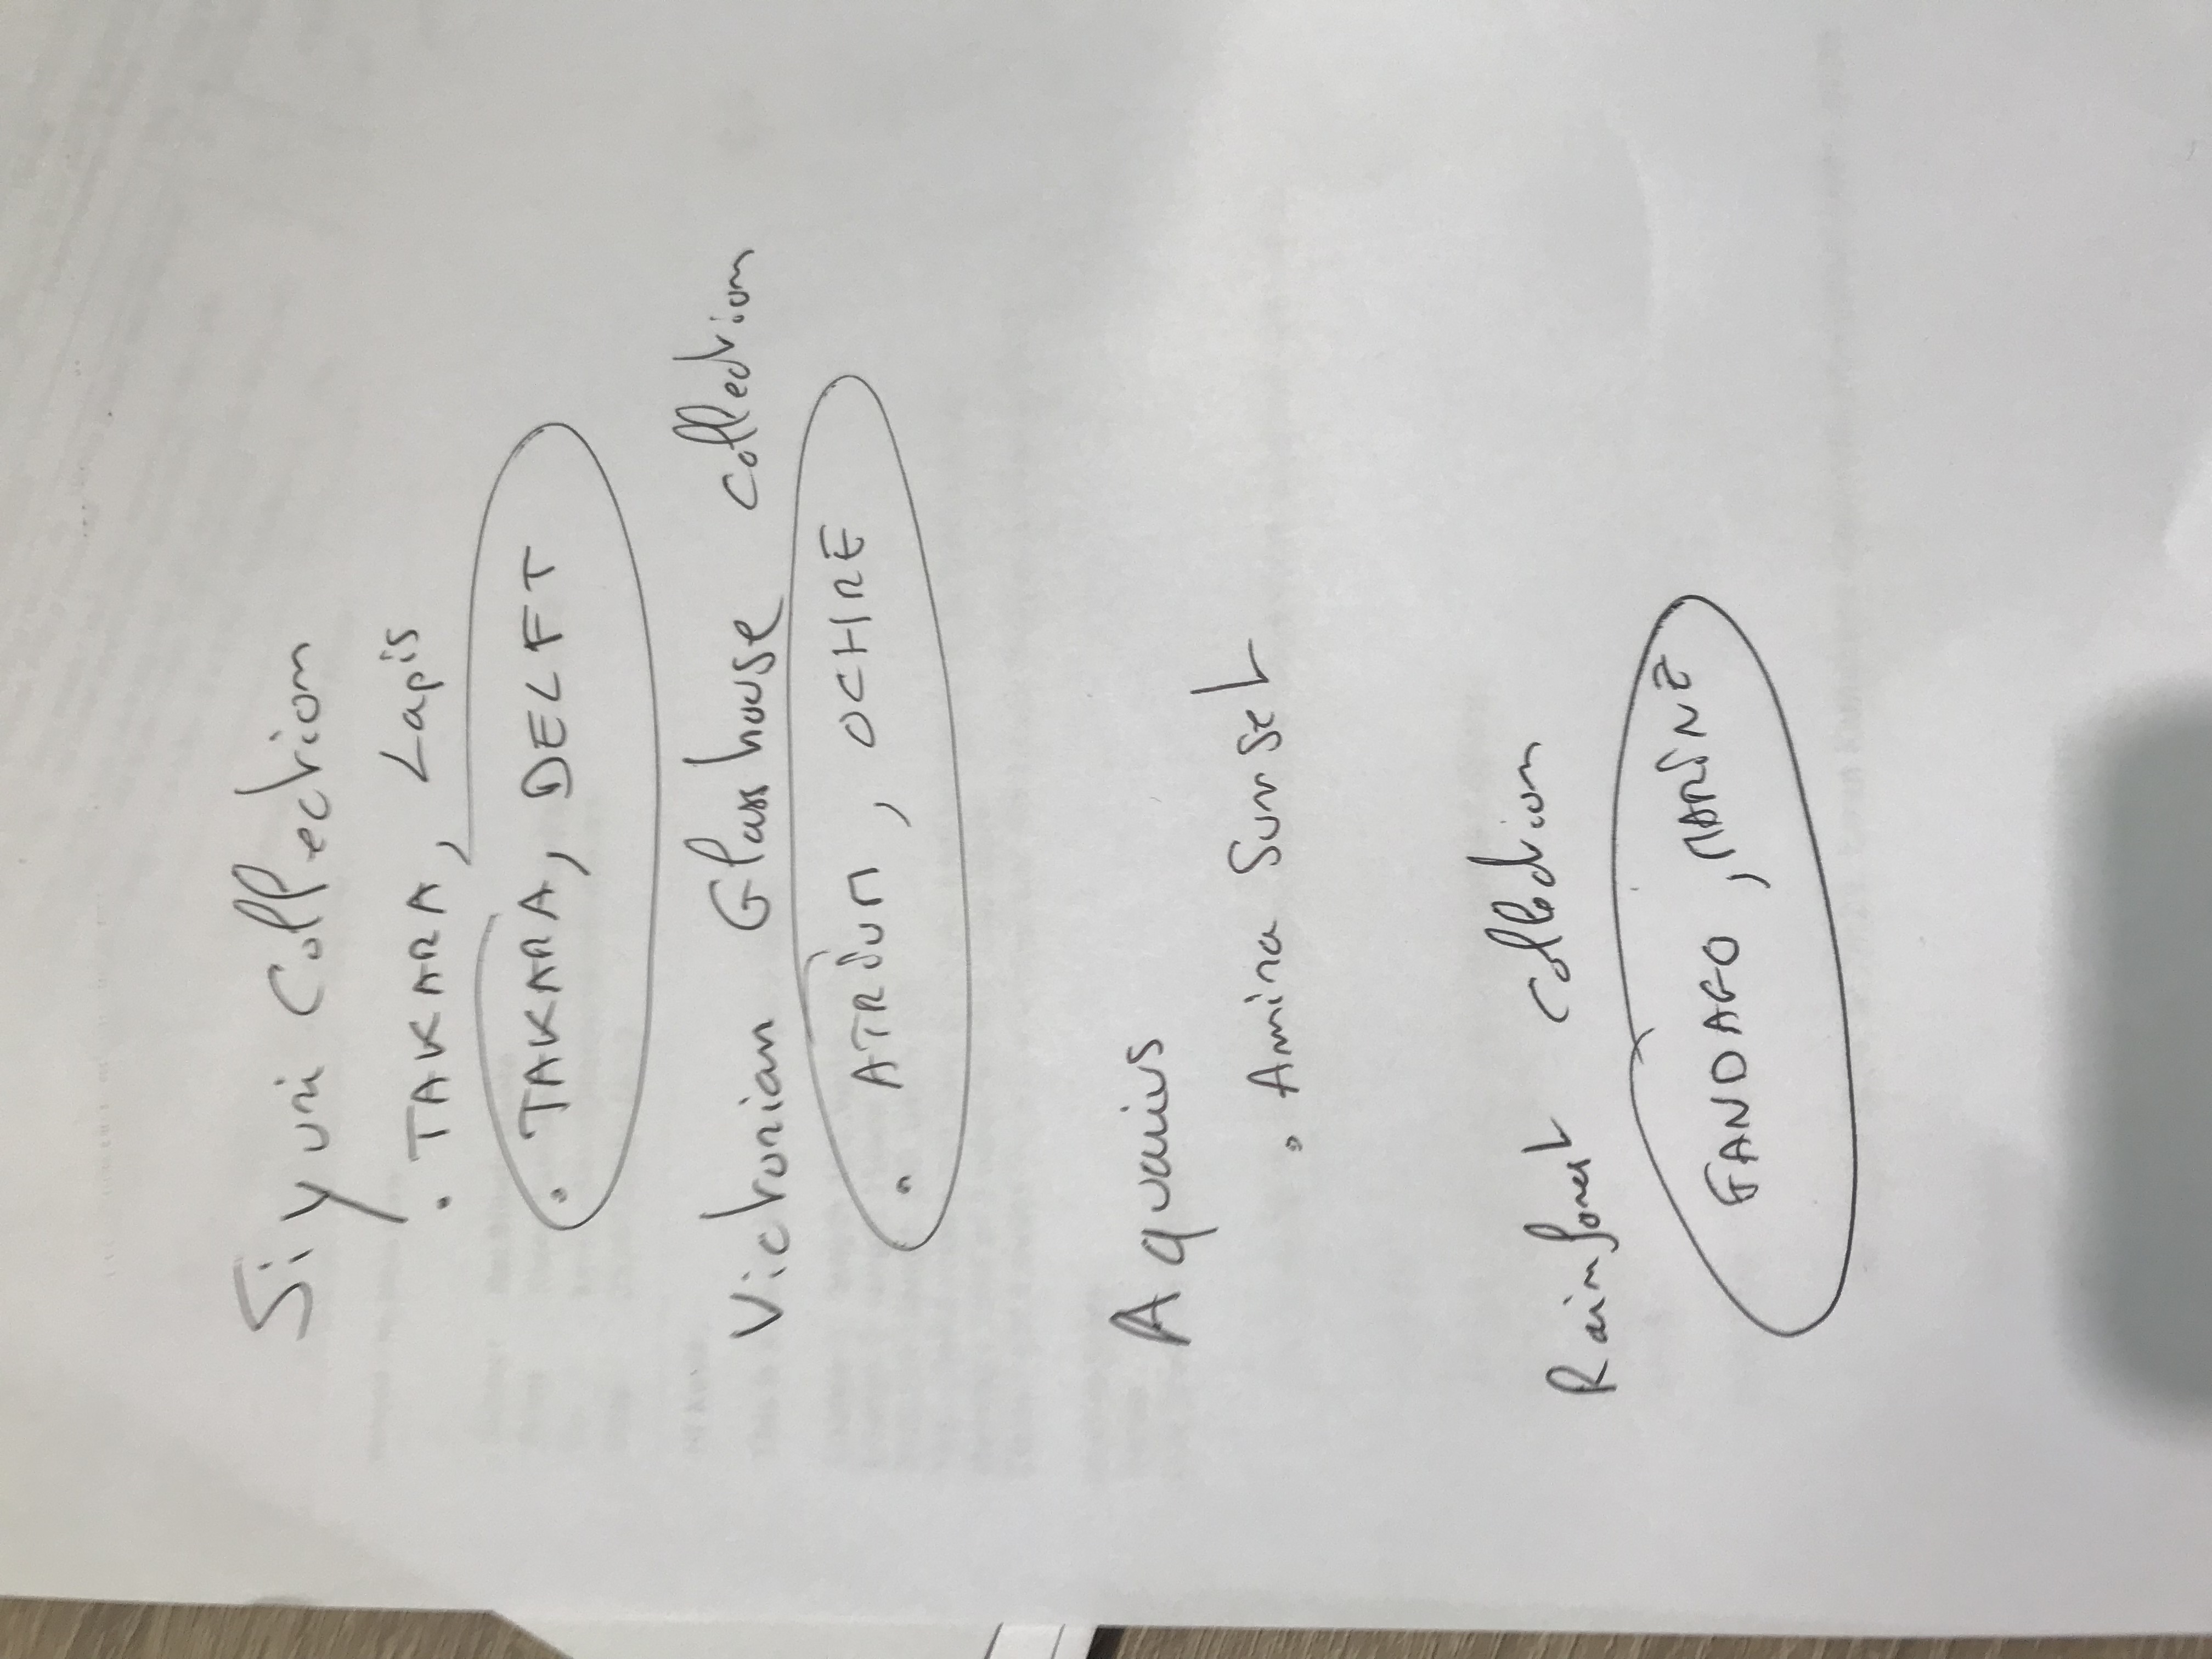 Siyuri Collection
• TAKARA, Lapis
• TAKARA, DELFT
Victorian Glasshouse collection
• ATRIUM, OCHRE
Aquarius
• Amina Sunset
Rainforest collection
FANDAGO, MARINE